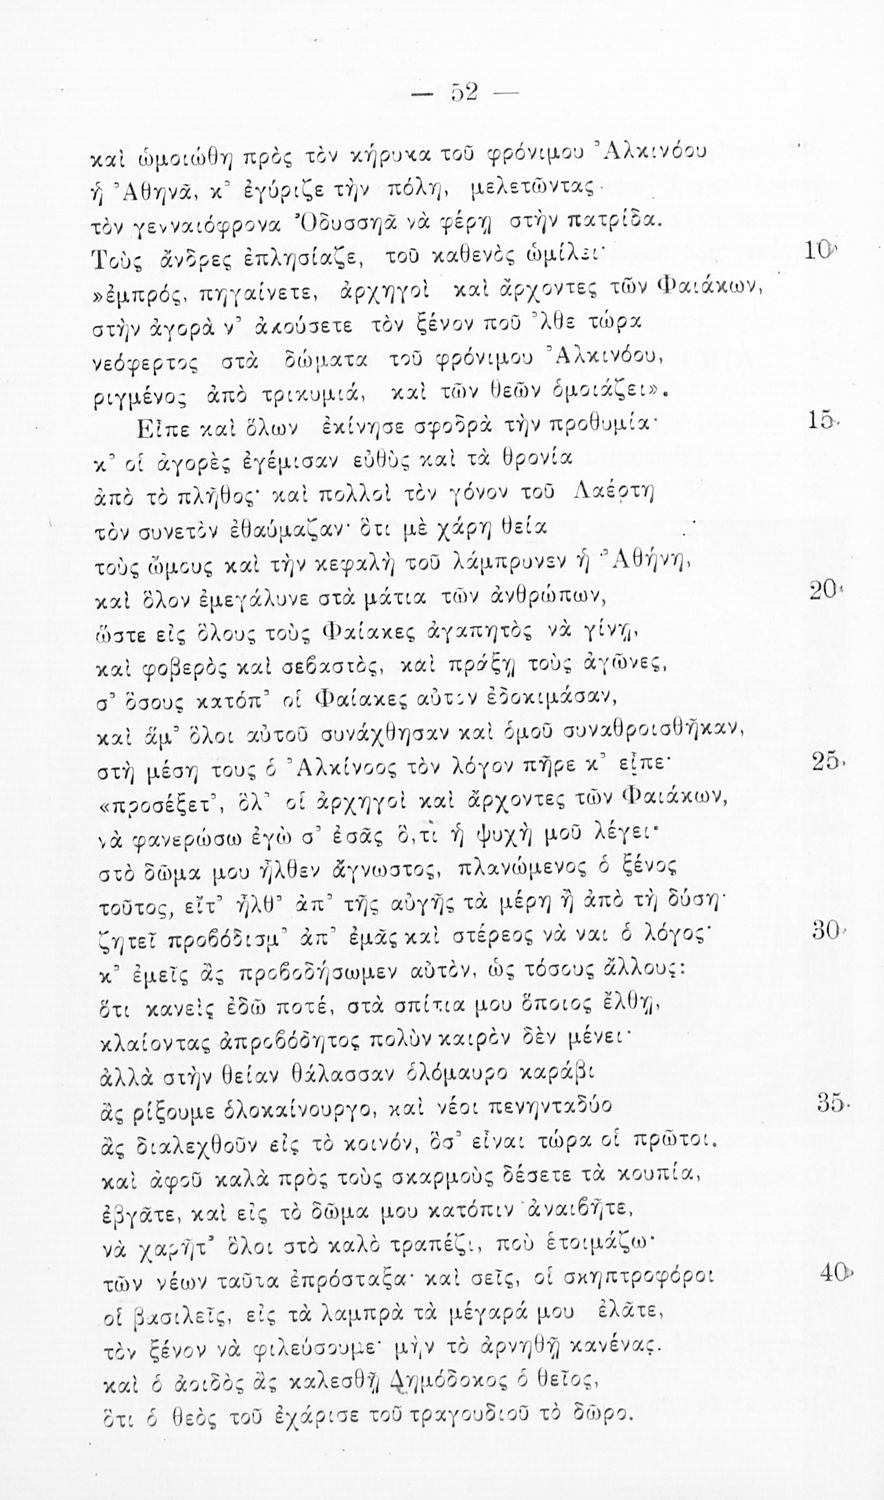 — 52 —
καὶ ὡμοιώθη πρὸς τὸν κήρυκα τοῦ φρόνιμου Ἀλκινόου
ἡ Ἀθηνᾶ, κ᾿ ἐγύριζε τὴν πόλη, μελετῶντας
τὸν γενναιόφρονα Ὀδυσσηᾶ νὰ φέρῃ στὴν πατρίδα.
Τοὺς ἄνδρες ἐπλησίαζε, τοῦ καθενὸς ὡμίλει· 10
»ἐμπρός, πηγαίνετε, ἀρχηγοὶ καὶ ἄρχοντες τῶν Φαιάκων,
στὴν ἀγορὰ ν᾿ ἀκούσετε τὸν ξένον ποῦ ᾿λθε τώρα
νεόφερτος στὰ δώματα τοῦ φρόνιμου Ἀλκινόου,
ριγμένος ἀπὸ τρικυμιά, καὶ τῶν θεῶν ὁμοιάζει».
Εἶπε καὶ ὅλων ἐκίνησε σφοδρὰ τὴν προθυμία· 15
κ᾿ οἱ ἀγορὲς ἐγέμισαν εὐθὺς καὶ τὰ θρονία
ἀπὸ τὸ πλῆθος· καὶ πολλοὶ τὸν γόνον τοῦ Λαέρτη
τὸν συνετὸν ἐθαύμαζαν· ὅτι μὲ χάρη θεία
τοὺς ὤμους καὶ τὴν κεφαλὴ τοῦ λάμπρυνεν ἡ Ἀθήνη,
καὶ ὅλον ἐμεγάλυνε στὰ μάτια τῶν ἀνθρώπων, 20
ὥστε εἰς ὅλους τοὺς Φαίακες ἀγαπητὸς νὰ γίνῃ,
καὶ φοβερὸς καὶ σεβαστὸς, καὶ πράξῃ τοὺς ἀγῶνες,
σ᾿ ὅσους κατόπ᾿ οἱ Φαίακες αὐτὸν ἐδοκιμάσαν,
καὶ ἅμ᾿ ὅλοι αὐτοῦ συνάχθησαν καὶ ὁμοῦ συναθροισθῆκαν,
στὴ μέση τους ὁ Ἀλκίνοος τὸν λόγον πῆρε κ᾿ εἶπε· 25
«προσέξετ᾿, ὅλ᾿ οἱ ἀρχηγοὶ καὶ ἄρχοντες τῶν Φαιάκων,
νὰ φανερώσω ἐγὼ σ᾿ ἐσᾶς ὅ,τι ἡ ψυχὴ μοῦ λέγει·
στὸ δῶμα μου ἦλθεν ἄγνωστος, πλανώμενος ὁ ξένος
τοῦτος, εἴτ᾿ ἦλθ᾿ ἀπ᾿ τῆς αὐγῆς τὰ μέρη ἢ ἀπὸ τὴ δύση·
ζητεῖ προβόδισμ᾿ ἀπ᾿ ἐμᾶς καὶ στέρεος νὰ ναι ὁ λόγος· 30
κ᾿ ἐμεῖς ἂς προβοδήσωμεν αὐτὸν, ὡς τόσους ἄλλους:
ὅτι κανεὶς ἐδῶ ποτέ, στὰ σπίτια μου ὅποιος ἔλθῃ,
κλαίοντας ἀπροβόδητος πολὺν καιρὸν δὲν μένει·
ἀλλὰ στὴν θείαν θάλασσαν ὁλόμαυρο καράβι
ἂς ρίξουμε ὁλοκαίνουργο, καὶ νέοι πενηνταδύο 35
ἂς διαλεχθοῦν εἰς τὸ κοινόν, ὅσ᾿ εἶναι τώρα οἱ πρῶτοι.
καὶ ἀφοῦ καλὰ πρὸς τοὺς σκαρμοὺς δέσετε τὰ κουπία,
ἐβγᾶτε, καὶ εἰς τὸ δῶμα μου κατόπιν ἀναιβῆτε,
νὰ χαρῆτ᾿ ὅλοι στὸ καλὸ τραπέζι, ποὺ ἑτοιμάζω·
τῶν νέων ταῦτα ἐπρόσταξα· καὶ σεῖς, οἱ σκηπτροφόροι 40
οἱ βασιλεῖς, εἰς τὰ λαμπρὰ τὰ μέγαρά μου ἐλᾶτε,
τὸν ξένον νὰ φιλεύσουμε· μὴν τὸ ἀρνηθῇ κανένας.
καὶ ὁ ἀοιδὸς ἂς καλεσθῇ Δημόδοκος ὁ θεῖος,
ὅτι ὁ θεὸς τοῦ ἐχάρισε τοῦ τραγουδιοῦ τὸ δῶρο.